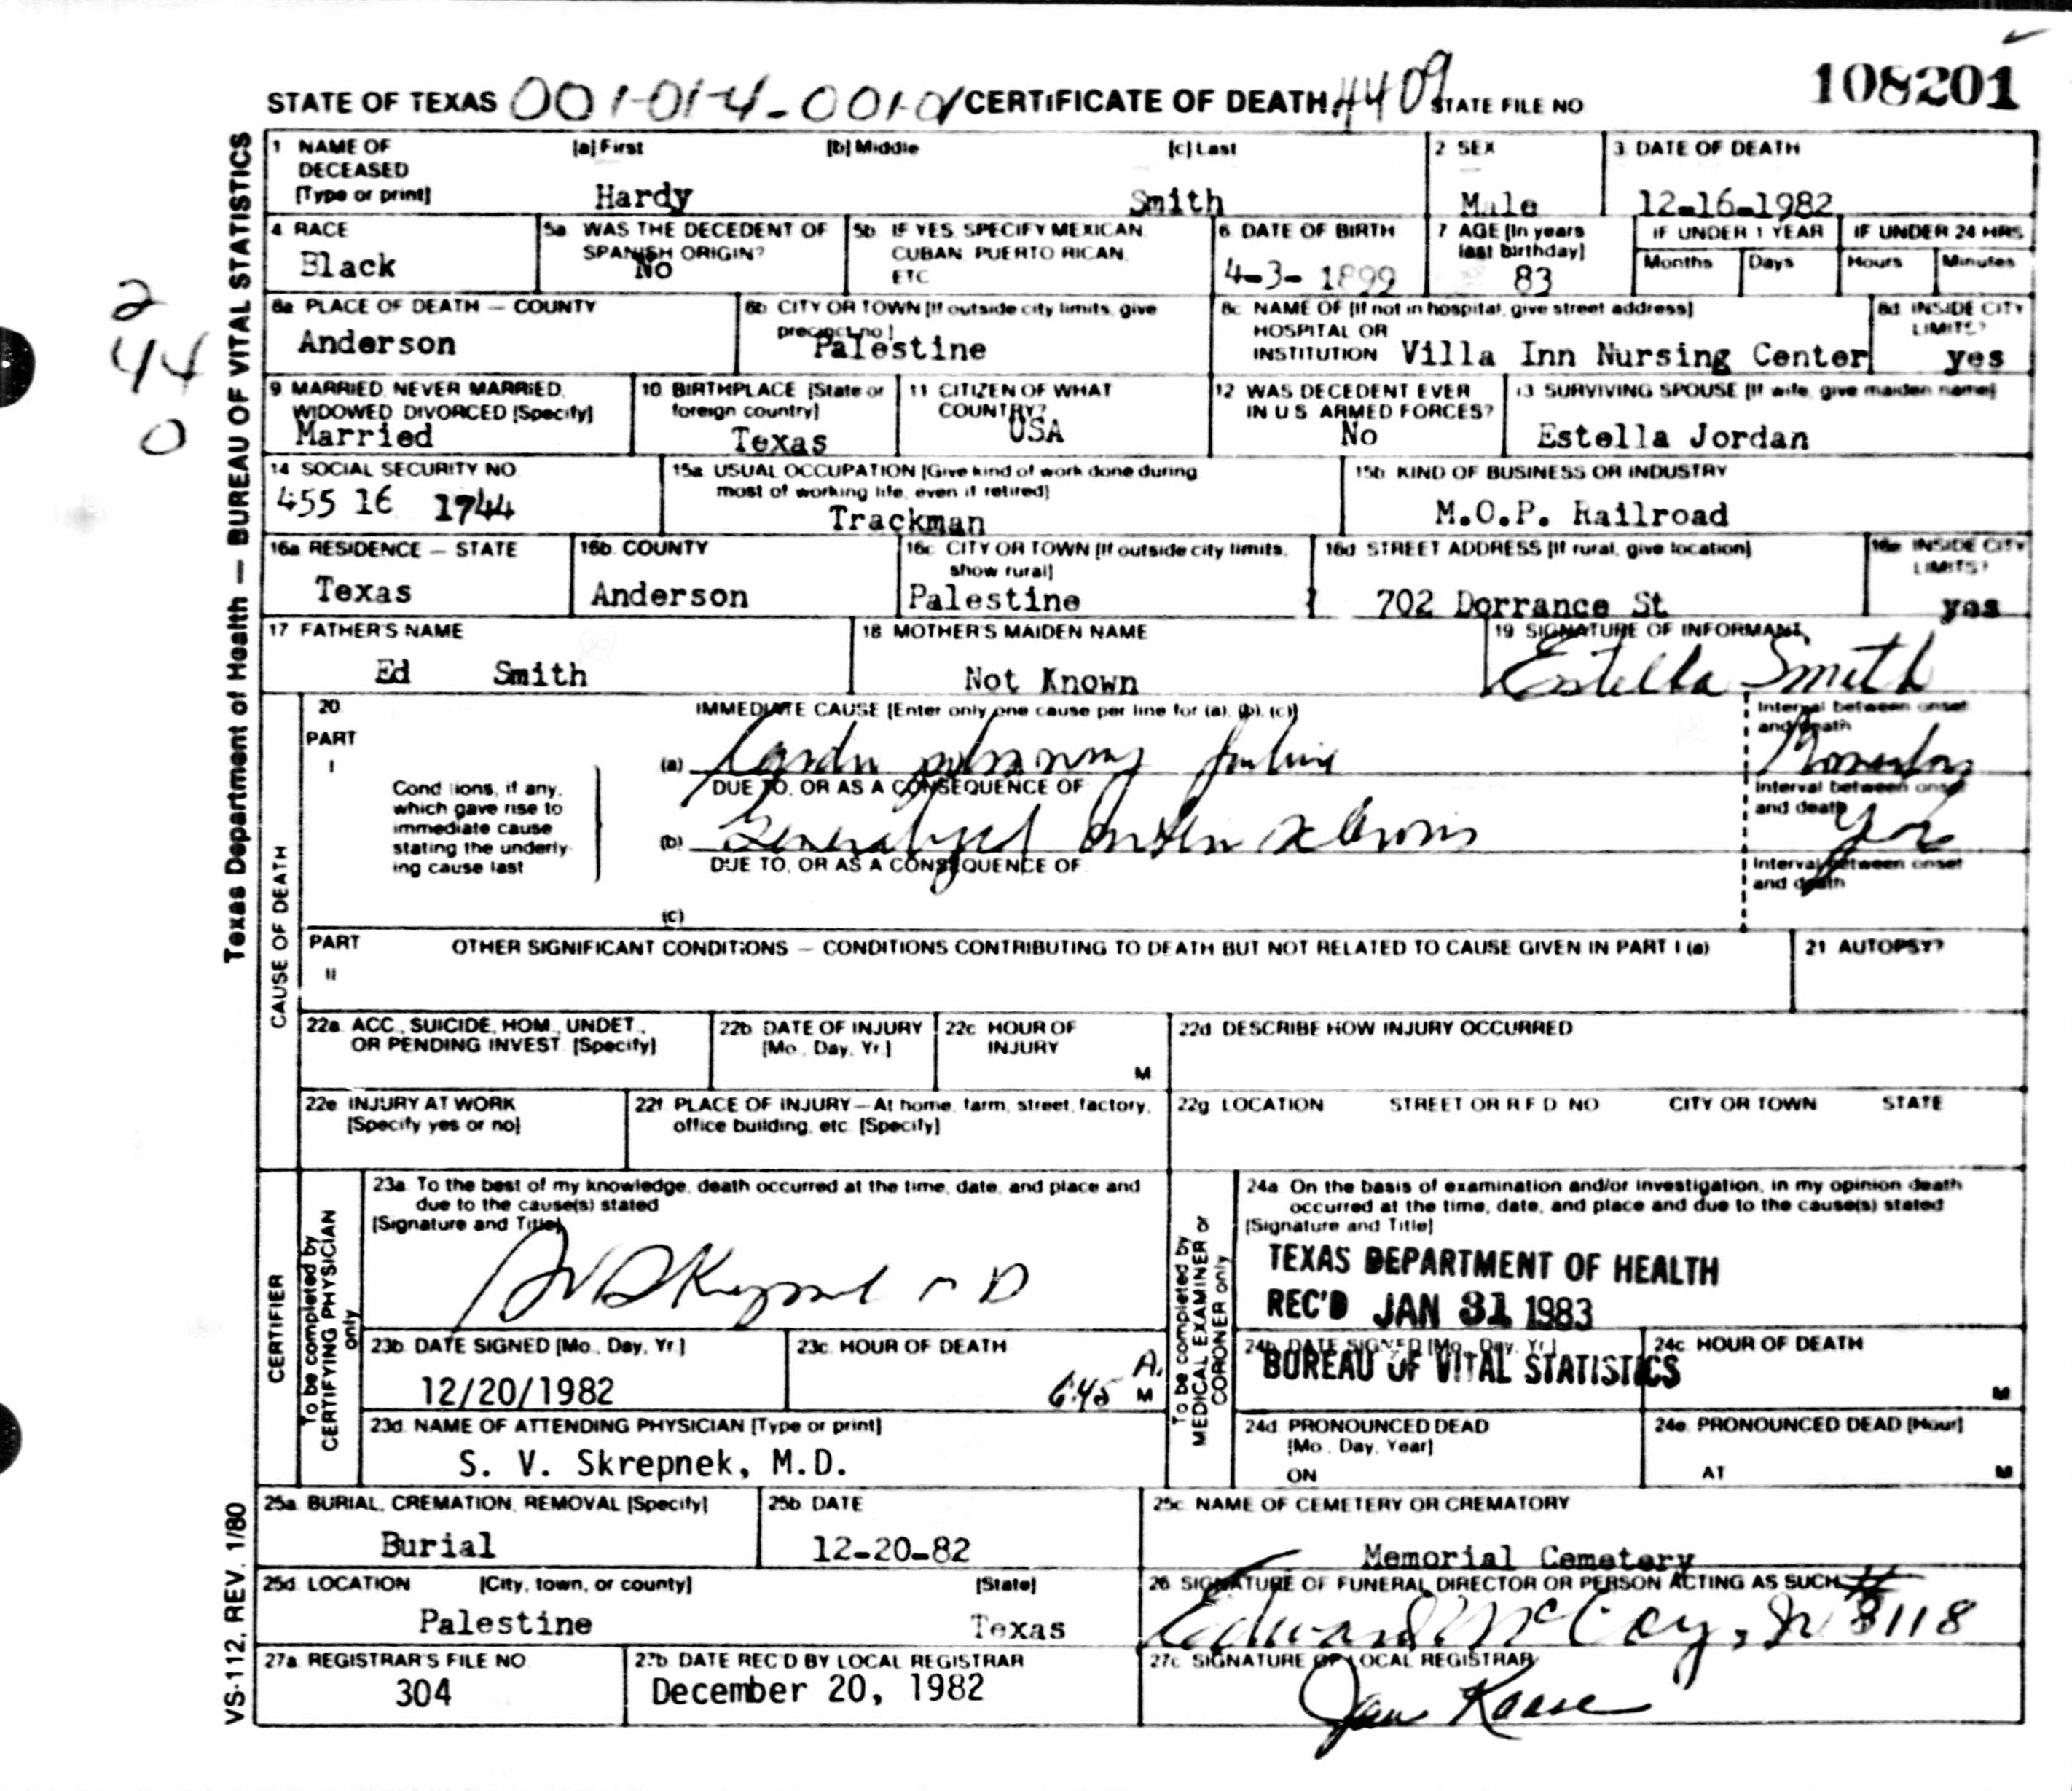 STATE OF TEXAS 001-014-001-0 CERTIFICATE OF DEATH 4409 STATE FILE NO 108201
Texas Department of Health — BUREAU OF VITAL STATISTICS
2
44
0
1 NAME OF DECEASED [Type or print] [a] First [b] Middle [c] Last 2 SEX 3 DATE OF DEATH
Hardy Smith Male 12-16-1982
4 RACE 5a WAS THE DECEDENT OF SPANISH ORIGIN? 5b IF YES, SPECIFY MEXICAN, CUBAN, PUERTO RICAN, ETC 6 DATE OF BIRTH 7 AGE [In years last birthday] IF UNDER 1 YEAR IF UNDER 24 HRS
Months Days Hours Minutes
Black No 4-3-1899 83
8a PLACE OF DEATH — COUNTY 8b CITY OR TOWN [If outside city limits, give precinct no] 8c NAME OF [If not in hospital, give street address] HOSPITAL OR INSTITUTION 8d INSIDE CITY LIMITS?
Anderson Palestine Villa Inn Nursing Center yes
9 MARRIED, NEVER MARRIED, WIDOWED, DIVORCED [Specify] 10 BIRTHPLACE [State or foreign country] 11 CITIZEN OF WHAT COUNTRY? 12 WAS DECEDENT EVER IN U S ARMED FORCES? 13 SURVIVING SPOUSE [If wife, give maiden name]
Married Texas USA No Estella Jordan
14 SOCIAL SECURITY NO 15a USUAL OCCUPATION [Give kind of work done during most of working life, even if retired] 15b KIND OF BUSINESS OR INDUSTRY
455 16 1744 Trackman M.O.P. Railroad
16a RESIDENCE — STATE 16b COUNTY 16c CITY OR TOWN [If outside city limits, show rural] 16d STREET ADDRESS [If rural, give location] 16e INSIDE CITY LIMITS?
Texas Anderson Palestine 702 Dorrance St yes
17 FATHER'S NAME 18 MOTHER'S MAIDEN NAME 19 SIGNATURE OF INFORMANT
Ed Smith Not Known Estella Smith
CAUSE OF DEATH
20 IMMEDIATE CAUSE [Enter only one cause per line for (a), (b), (c)] Interval between onset and death
PART I
(a) Cardio pulmonary failure
Conditions, if any, which gave rise to immediate cause stating the underlying cause last
DUE TO, OR AS A CONSEQUENCE OF Interval between onset and death
(b) Generalized arterio sclerosis yrs
DUE TO, OR AS A CONSEQUENCE OF Interval between onset and death
(c)
PART II OTHER SIGNIFICANT CONDITIONS — CONDITIONS CONTRIBUTING TO DEATH BUT NOT RELATED TO CAUSE GIVEN IN PART I (a) 21 AUTOPSY?
22a ACC., SUICIDE, HOM., UNDET., OR PENDING INVEST. [Specify] 22b DATE OF INJURY [Mo., Day, Yr.] 22c HOUR OF INJURY M 22d DESCRIBE HOW INJURY OCCURRED
22e INJURY AT WORK [Specify yes or no] 22f PLACE OF INJURY—At home, farm, street, factory, office building, etc [Specify] 22g LOCATION STREET OR R F D NO CITY OR TOWN STATE
CERTIFIER
To be completed by CERTIFYING PHYSICIAN only
23a To the best of my knowledge, death occurred at the time, date, and place and due to the cause(s) stated
[Signature and Title]
SV Skrepnek MD
23b DATE SIGNED [Mo., Day, Yr.] 23c HOUR OF DEATH
12/20/1982 6:45 A. M
23d NAME OF ATTENDING PHYSICIAN [Type or print]
S. V. Skrepnek, M.D.
To be completed by MEDICAL EXAMINER or CORONER only
24a On the basis of examination and/or investigation, in my opinion death occurred at the time, date, and place and due to the cause(s) stated
[Signature and Title]
TEXAS DEPARTMENT OF HEALTH
REC'D JAN 31 1983
BUREAU OF VITAL STATISTICS
24b DATE SIGNED [Mo., Day, Yr.] 24c HOUR OF DEATH M
24d PRONOUNCED DEAD [Mo., Day, Year] ON 24e PRONOUNCED DEAD [Hour] AT M
25a BURIAL, CREMATION, REMOVAL [Specify] 25b DATE 25c NAME OF CEMETERY OR CREMATORY
Burial 12-20-82 Memorial Cemetery
25d LOCATION [City, town, or county] [State] 26 SIGNATURE OF FUNERAL DIRECTOR OR PERSON ACTING AS SUCH
Palestine Texas Edward McCoy, Jr #8118
27a REGISTRAR'S FILE NO 27b DATE REC'D BY LOCAL REGISTRAR 27c SIGNATURE OF LOCAL REGISTRAR
304 December 20, 1982
VS-112, REV. 1/80